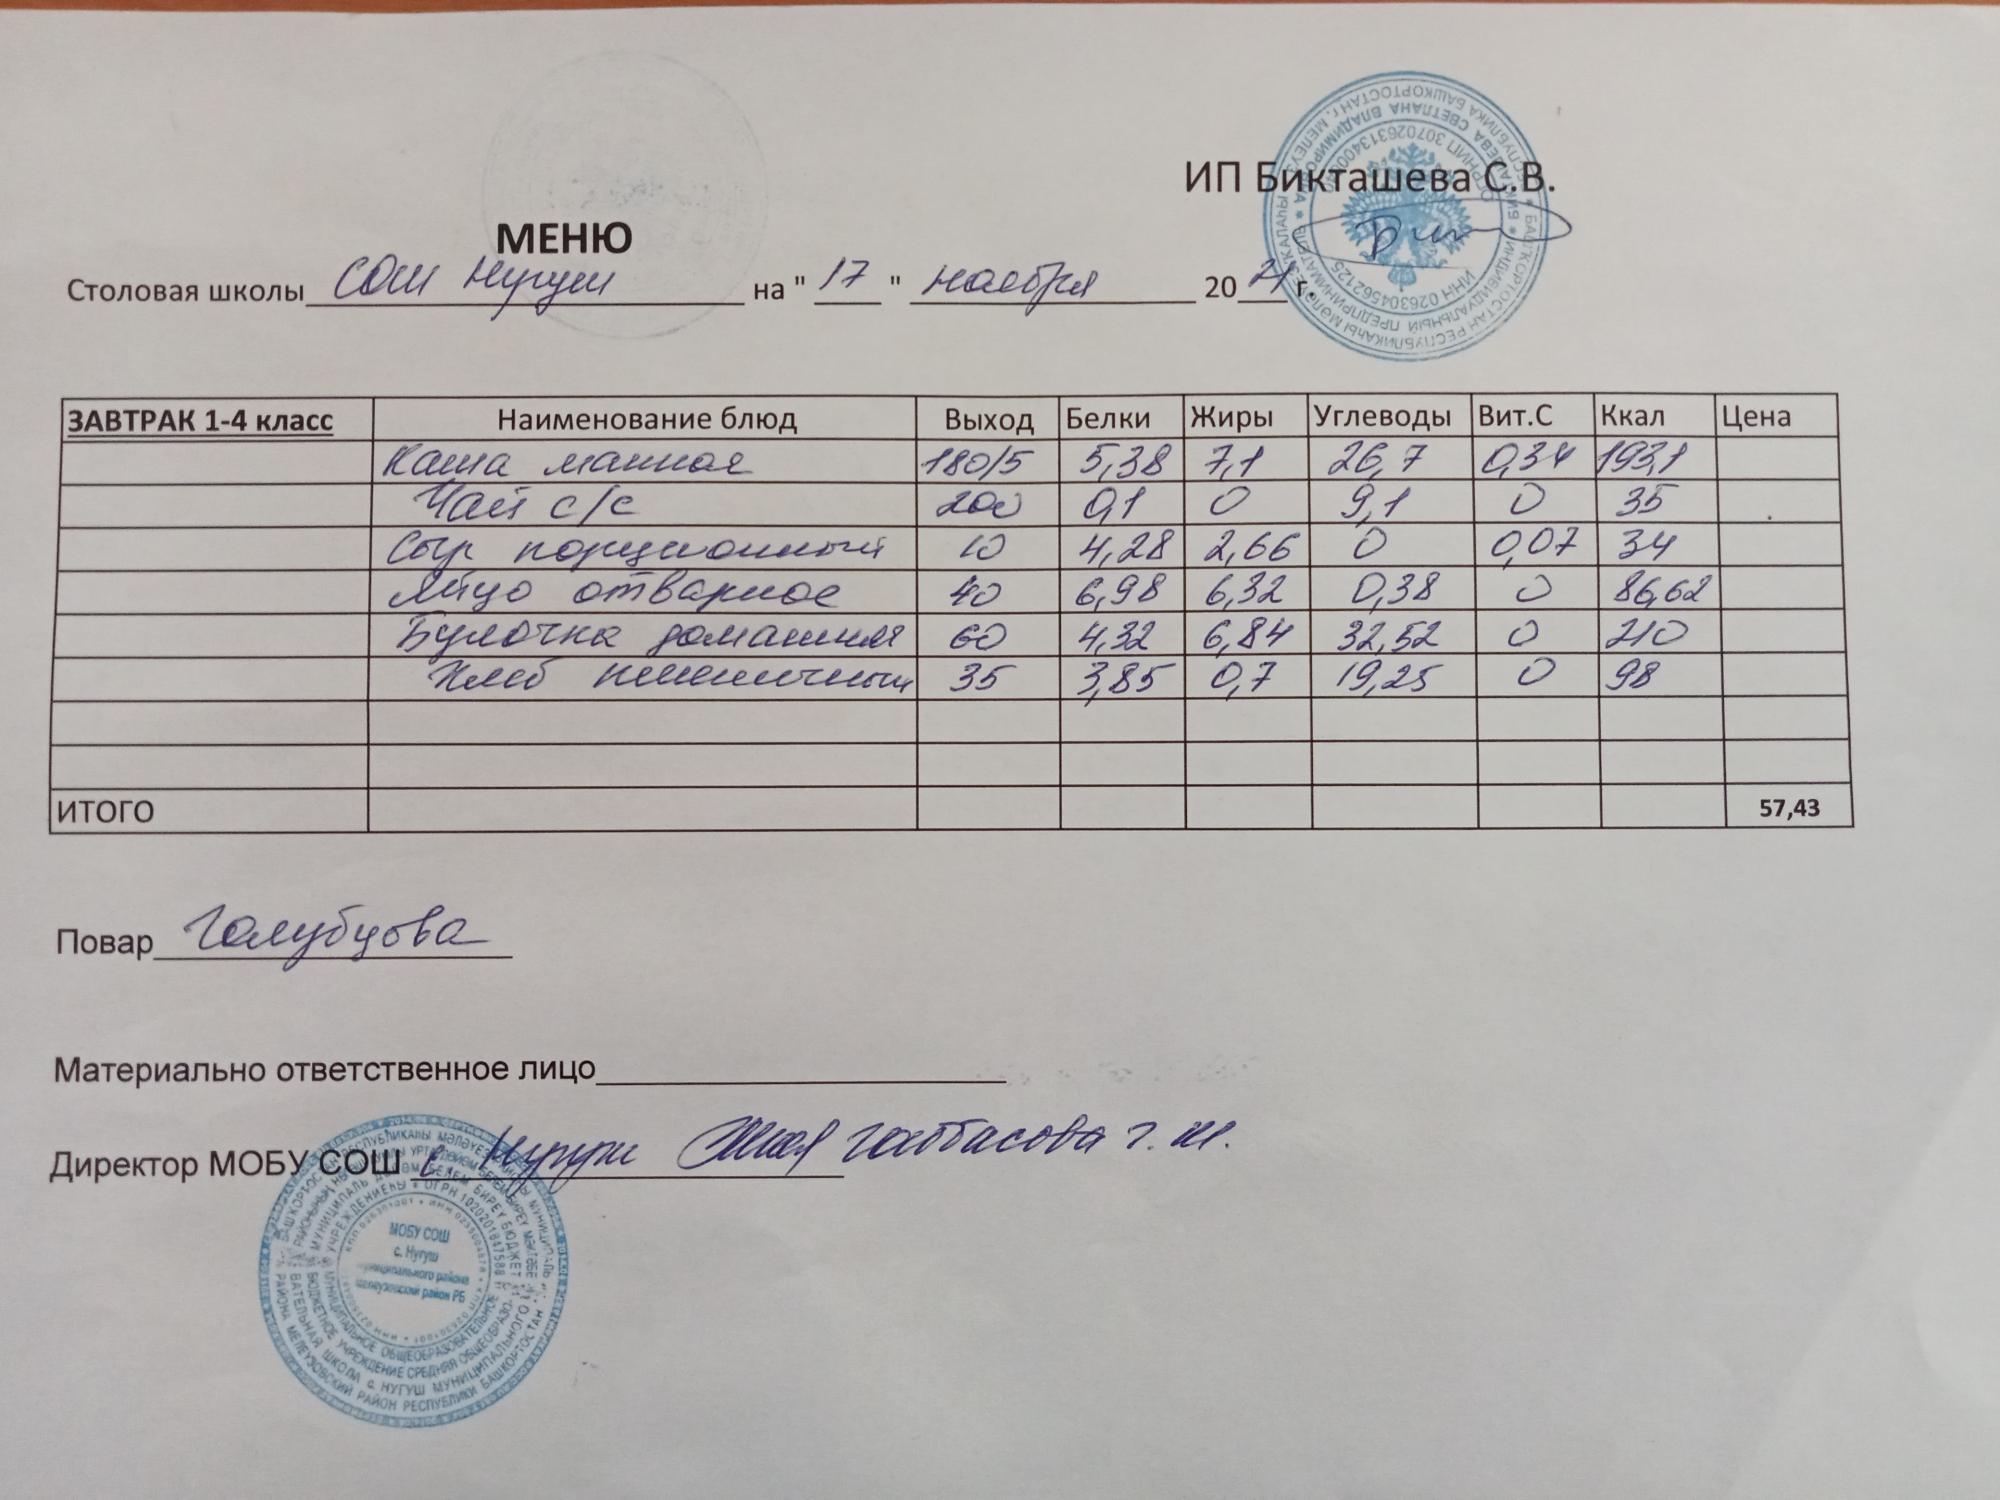 ИП Бикташева С.В.
МЕНЮ
Столовая школы СОШ Нугуш на " 17 " ноября 2021 г.
ЗАВТРАК 1-4 класс Наименование блюд Выход Белки Жиры Углеводы Вит.С Ккал Цена
Каша манная 180/5 5,38 7,1 26,7 0,34 193,1
Чай с/с 200 0,1 0 9,1 0 35
Сыр порционный 10 4,28 2,66 0 0,07 34
Яйцо отварное 40 6,98 6,32 0,38 0 86,62
Булочка домашняя 60 4,32 6,84 32,52 0 210
Хлеб пшеничный 35 3,85 0,7 19,25 0 98
ИТОГО 57,43
Повар Голубцова
Материально ответственное лицо
Директор МОБУ СОШ с. Нугуш
МОБУ СОШ
с. Нугуш
муниципального района
Мелеузовский район РБ